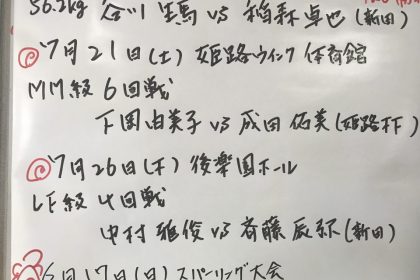 56.2kg 谷川 生馬 vs 稲森 卓也 (新田)
7月21日(土) 姫路ウインク体育館
MM級 6回戦
下岡由美子 vs 成田佑美 (姫路木下)
7月26日(木) 後楽園ホール
LF級 4回戦
中村 雅俊 vs 斉藤
(新田)
6月17日(日) スパーリング大会